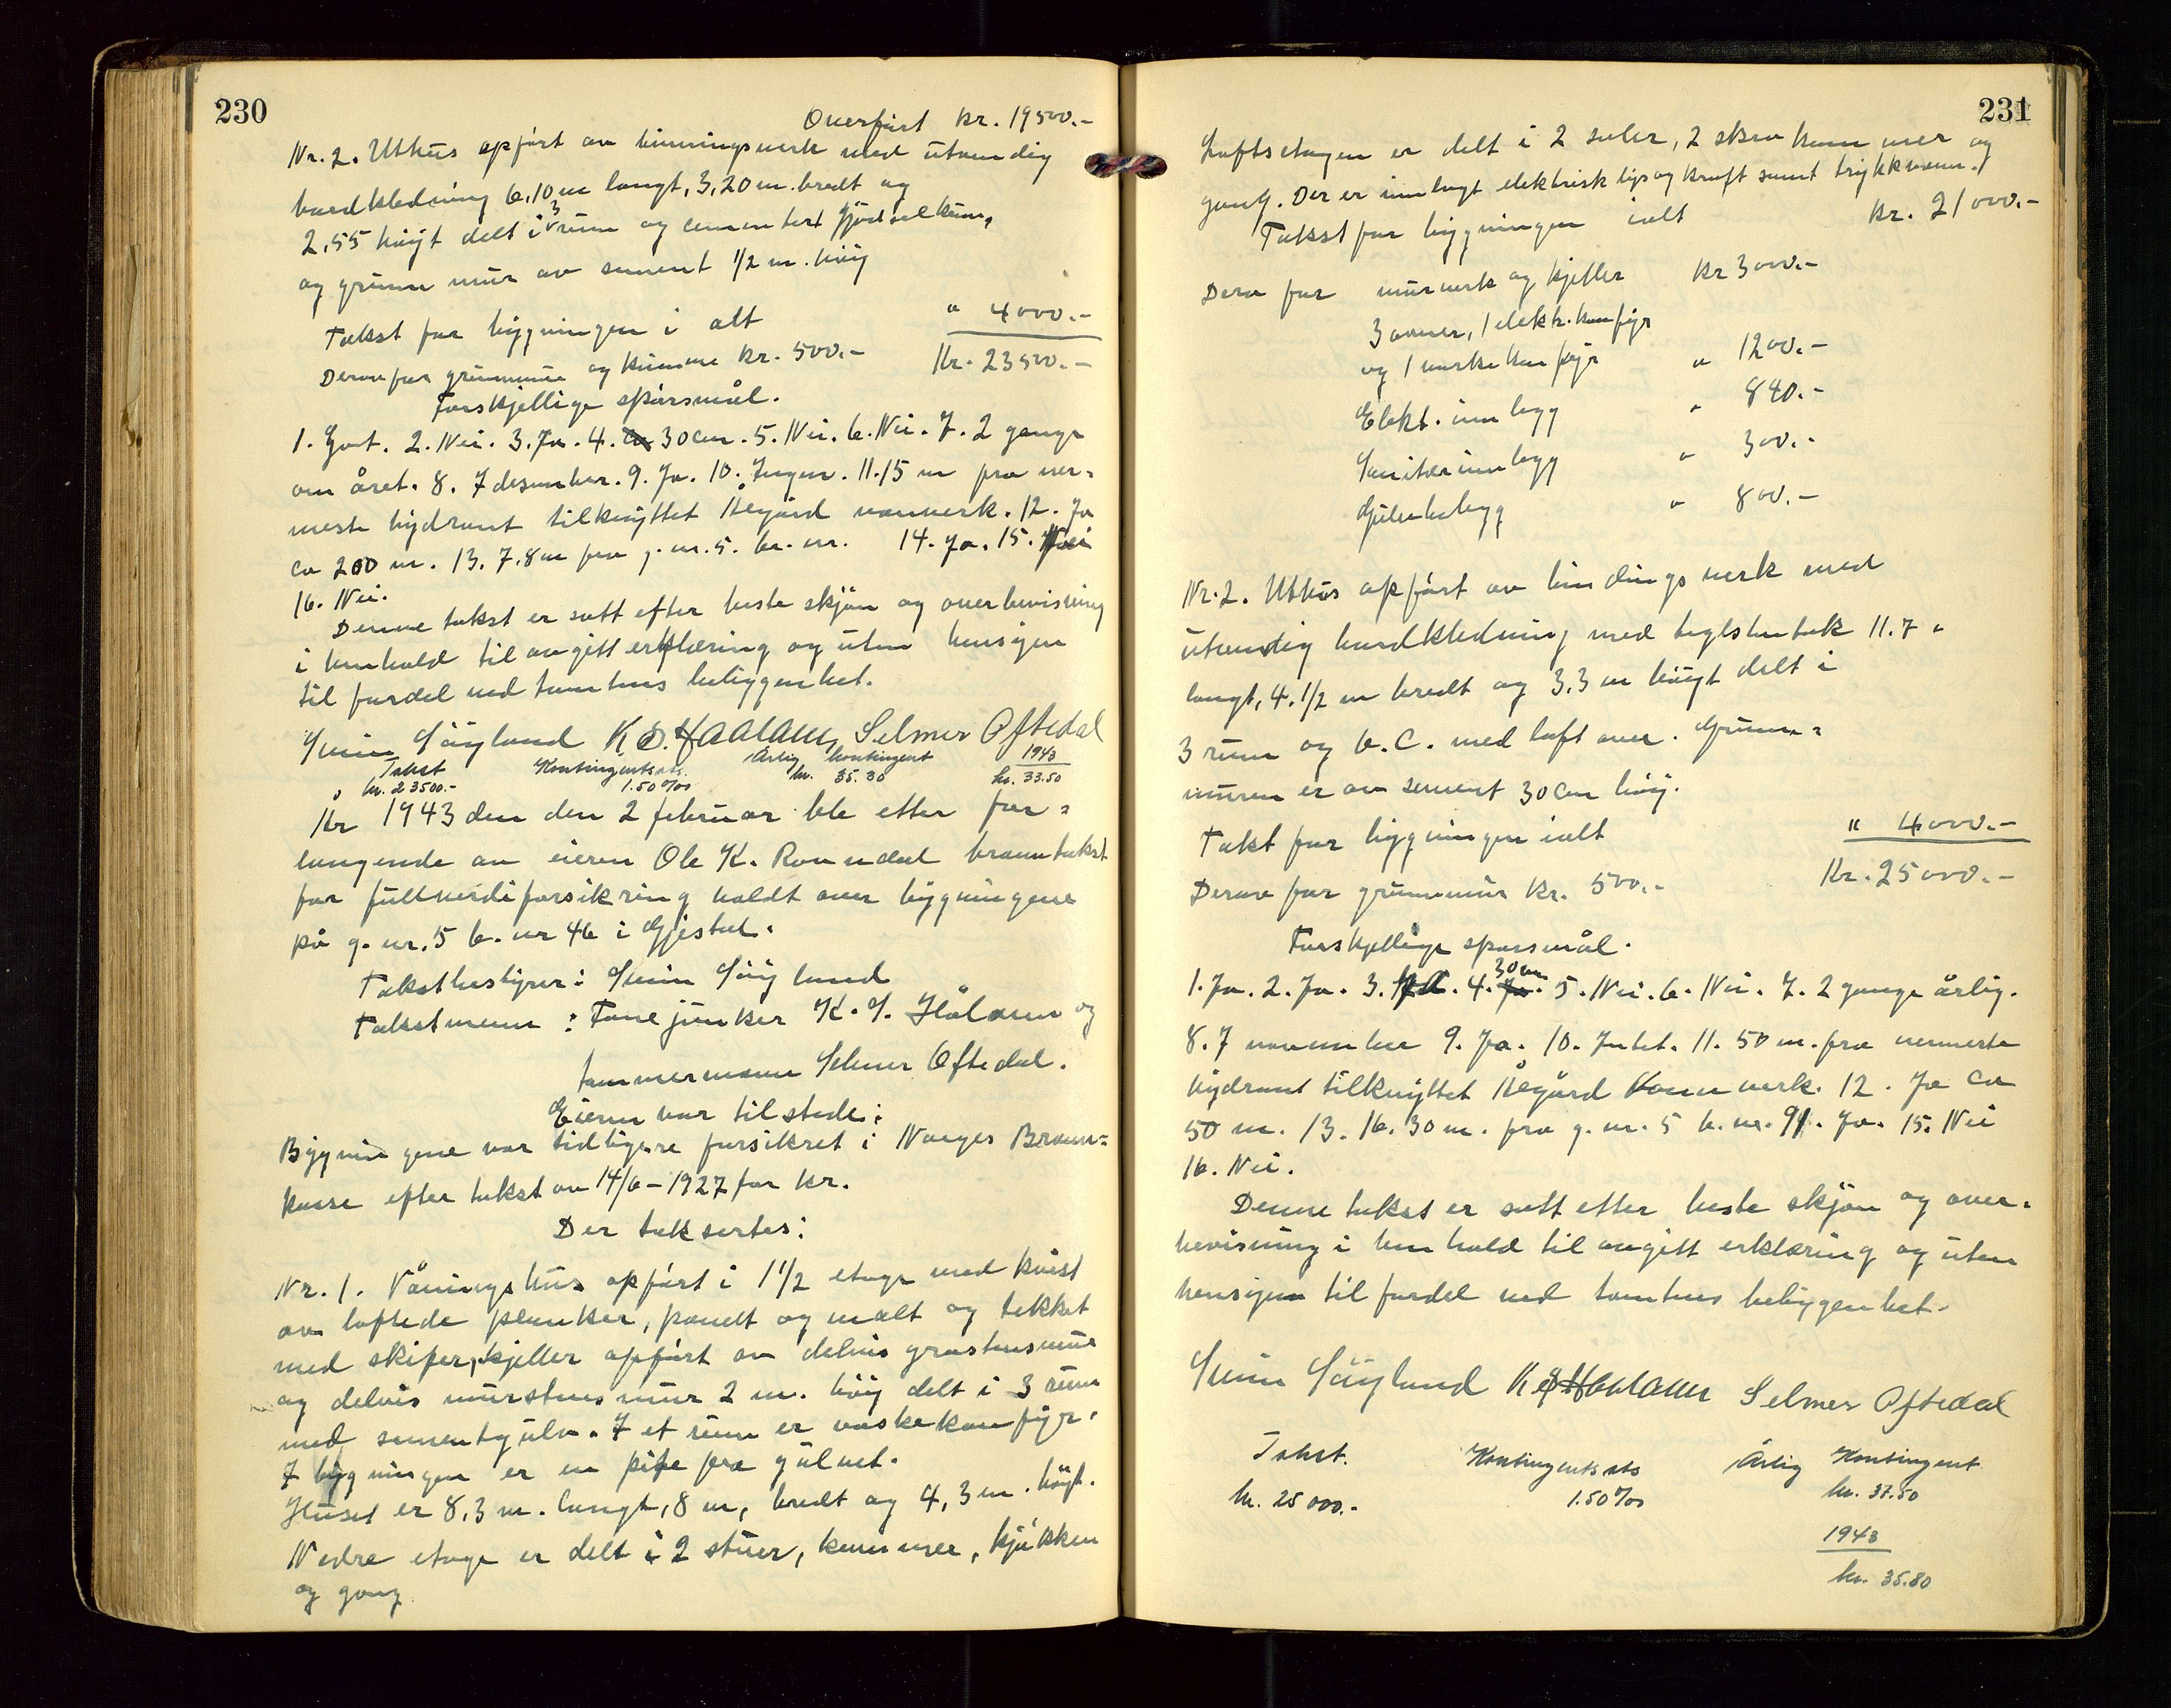 230
Overført kr. 19500.-
Nr. 2. Uthus opført av binningsverk med utvendig
bordkledning 6,10 m langt, 3,20 m. bredt og
2,55 høyt delt i 3 rum og cementert gjødselkum,
og grunn mur av sement 1/2 m. høy
Takst for bygningen i alt " 4000.-
Derav for grunnmur og kumme kr. 500.- Kr. 23500.-
Forskjellige spørsmål.
1. Godt. 2. Nei. 3. Ja. 4. 30 cm. 5. Nei. 6. Nei. 7. 2 gange
om året. 8. 7 desember. 9. Ja. 10. Ingen. 11. 15 m fra ner-
meste hydrant tilknyttet Ålgård vannverk. 12. Ja
ca 200 m. 13. 7,8 m fra g. nr. 5. br. nr. 14. Ja. 15. Nei
16. Nei.
Denne takst er satt efter beste skjøn og overbevisning
i henhold til avgitt erklæring og uten hensyn
til fordel ved tomtens beliggenhet.
Svein Søyland K. S. Haaland, Selmer Oftedal
Takst Kontingentsats Årlig kontingent 1943
kr. 23500.- 1.50 ‰ kr. 35.30 kr. 33.50
År 1943 den den 2 februar ble etter for-
langende av eieren Ole K. Ravndal branntakst
for fullverdiforsikring holdt over bygningene
på g. nr. 5 b. nr 46 i Gjestal.
Takstbestyrer: Svein Søyland
Takstmenn: Fanejunker K. S. Håland og
tømmermann Selmer Oftedal.
Eieren var tilstede:
Bygningene var tidligere forsikret i Norges Brann-
kasse efter takst av 14/6-1927 for kr.
Der taksertes:
Nr. 1. Våningshus opført i 1 1/2 etage med kvist
av loftede planker, panelt og malt og tekket
med skifer, kjeller opført av delvis gråstensmur
og delvis murstensmur 2 m. høy delt i 3 rum
med sementgulv. I et rum er vaskekomfyr.
I bygningen er en pipe fra gulvet.
Huset er 8,3 m. langt, 8 m, bredt og 4,3 m. høyt.
Nedre etage er delt i 2 stuer, kammer, kjøkken
og gang
231
Loftsetagen er delt i 2 saler, 2 skra kammer og
gang. Der er innlagt elektrisk lys og kraft samt trykkvann.
Takst for bygningen ialt kr. 21000.-
Derav for murverk og kjeller kr 3000.-
3 ovner, 1 elektr. komfyr
og 1 vaske komfyr " 1200.-
Elekt. innlegg " 840.-
Sanitærinnlegg " 300.-
Gulvbelegg " 800.-
Nr. 2. Uthus opført av bindingsverk med
utvendig bordkledning med teglstentak 11.7 "
langt, 4. 1/2 m bredt og 3,3 m høyt delt i
3 rum og W. C. med loft over. Grunn-
muren er av sement 30 cm høy.
Takt for bygningen ialt " 4000.-
Derav for grunnmur kr. 500.- Kr. 25000.-
Forskjellige spørsmål.
1. Ja. 2. Ja. 3. Ja. 4. 30 cm 5. Nei. 6. Nei. 7. 2 gange årlig.
8. 7 november 9. Ja. 10. Intet. 11. 50 m. fra nermeste
hydrant tilknyttet Ålgård Vannverk. 12. Ja ca
50 m. 13. 16.30 m. fra g. nr. 5 b. nr. 91. Ja. 15. Nei
16. Nei.
Denne takst er satt etter beste skjøn og over-
bevisning i henhold til avgitt erklæring og uten
hensyn til fordel ved tomtens beliggenhet.
Svein Søyland K. S. Haaland Selmer Oftedal
Takst. Kontingentsats Årlig Kontingent
kr. 25000.- 1.50 ‰ kr. 37.50
1943
kr. 35.80